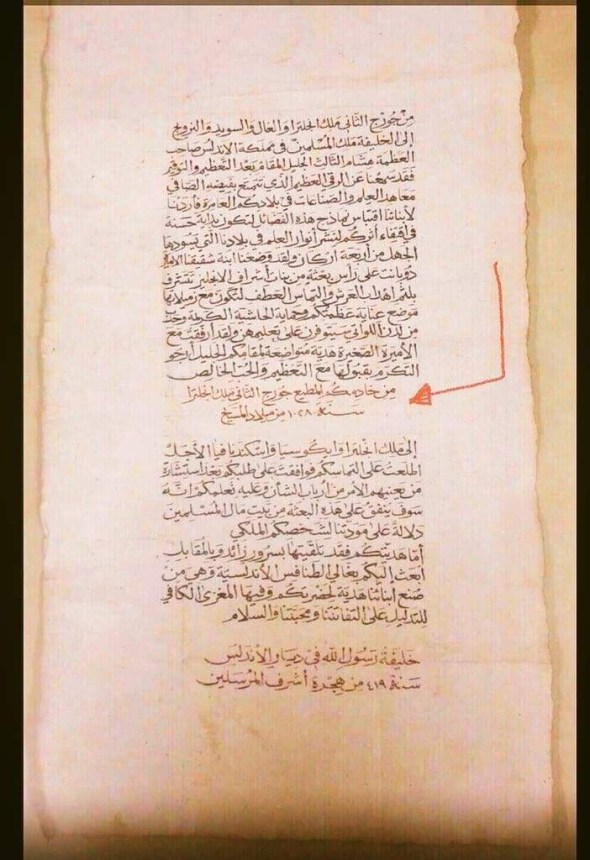 مِنْ جُورْجِ الثَّانِي مَلِكِ انجلترا وَالغَالِ وَالسُّوَيدِ وَالنرويج
إلى الخليفة مَلِكِ المُسْلِمِينَ فِي مَمْلَكَةِ الأنْدلُسْ صَاحِب
العَظَمَة هِشَام الثالث الجليل المقَام بَعْدَ التَّعظِيمِ وَالتَّوقير
فَقَدْ سَمِعْنَا عَنِ الرقيِّ العَظِيمِ الَّذِي تَتَمَتَّعُ بِفَيْضِهِ الصَّافِي
مَعَاهِدُ العِلمِ وَالصِّنَاعَاتِ فِي بِلادِكُم العَامِرَةِ فَأَرَدْنَا
لأبنائنَا اقتباس نَمَاذِجَ هذِهِ الفَضَائِلِ لِتَكُونَ بِدَايَةً حَسَنَةً
فِي اقتِفَاءِ أثَرِكُم لِنَشْرِ أنْوَارِ العلمِ فِي بِلادِنَا الَّتِي يَسُودُهَا
الجَهْلُ مِنْ أرْبَعَةِ أرْكَان وَلَقَدْ وَضَعْنَا ابْنَة شَقِيقِنَا الأميرة
دُوبَانت عَلَى رَأسِ بعثَةٍ مِنْ بَنَاتِ أشْرَافِ الانجليز تَتَشَرَّف
بِلَثْمِ أهْدَابِ العَرْشِ وَالتِمَاسِ العَطفِ لِتَكُونَ مَعَ زَمِيلَاتِهَا
مَوْضِعَ عِنَايَةِ عَظَمَتِكُم وَحِمَايَةِ الحَاشِيَةِ الكَرِيمَةِ
مِن لَدُنِ اللَّوَاتِي سَيَتَوَفَّرْنَ عَلَى تَعْلِيمِهِنَّ وَلَقَدْ أرْفَقْتُ مَعَ
الأمِيرَةِ الصَّغِيرَةِ هَدِيَّة مُتَوَاضِعَة لِمَقَامِكُم الجَلِيلِ أرْجُو
التَّكَرُّمَ بِقَبُولِهَا مَعَ التَّعْظِيمِ وَالحُبِّ الخَالِص
مِن خَادِمِكُم المُطِيعِ جُورْجِ الثَّانِي مَلِكِ انجلترا
سَنَة ١٠٢٨ مِنْ مِيلَادِ المَسِيح
إلَى مَلِكِ انجلترا وَايكُوسِيَا وَاسْكَنْدِينَافِيَا الأجَلّ
اطلَعْتُ عَلَى التِمَاسِكُم فَوَافَقْتُ عَلَى طَلَبِكُم بَعْدَ اسْتِشَارَةِ
مَن يَعْنِيهِم الأمْر مِن أرْبَابِ الشَّأن وَعَلَيهِ نُعْلِمُكُم أنَّهُ
سَوْفَ يُنْفَقُ عَلَى هَذِهِ البَعْثَةِ مِن بَيتِ مَالِ المُسْلِمِينَ
دَلَالَةً عَلَى مَوَدَّتِنَا لِشَخْصِكُم المَلَكِي
أمَّا هَدِيَّتُكُم فَقَدْ تَلَقَّيْتُهَا بِسُرُورٍ زَائِدٍ وَبِالمُقَابِل
أبْعَثُ إلَيْكُم بِغَالِي الطَّنَافِسِ الأنْدَلُسِيَّةِ وَهِيَ مِنْ
صُنْعِ أبْنَائِنَا هَدِيَّةً لِحَضْرَتِكُم وَفِيهَا المَغْزَى الكَافِي
لِلتَّدْلِيلِ عَلَى التِفَاتَتِنَا وَمَحَبَّتِنَا وَالسَّلَام
خَلِيفَة رَسُولِ اللهِ فِي دِيَارِ الأنْدَلُس
سَنَة ٤١٩ مِن هِجْرَةِ أشْرَفِ المُرْسَلِين